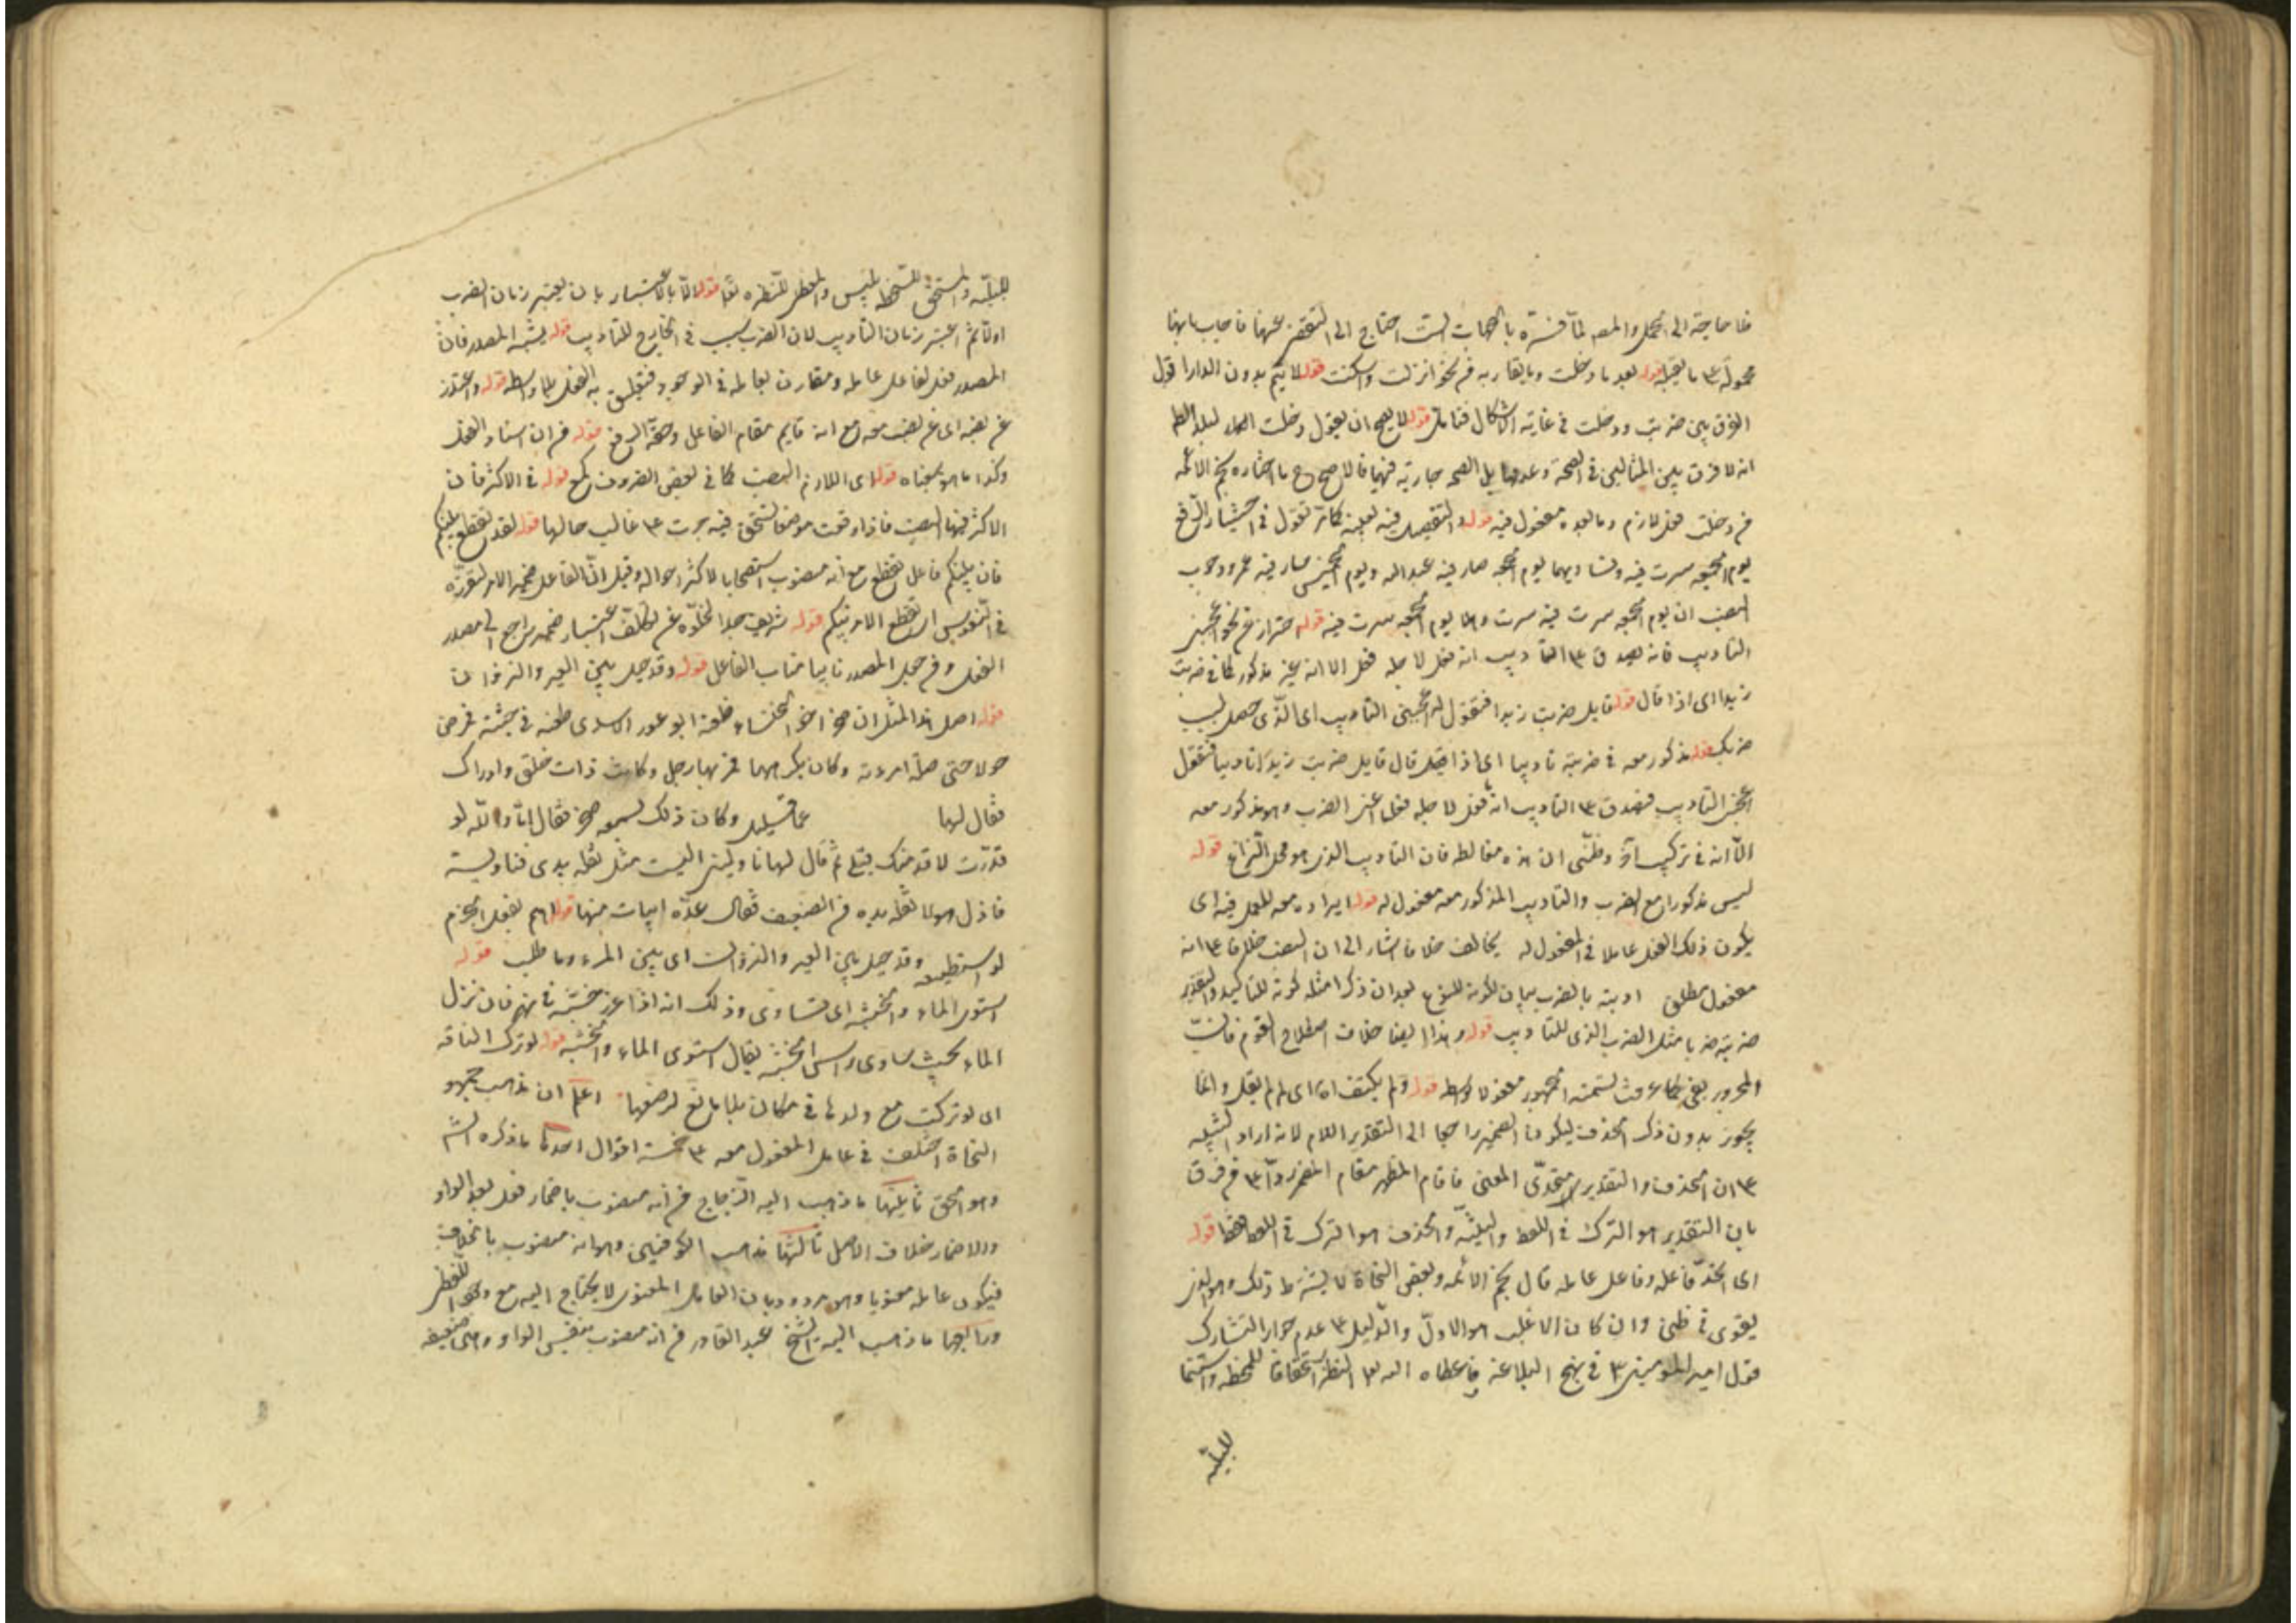 فلا حاجة الى الحمل والمصه لما فسره بالجهات الست احتاج الى التعقر عنها فاجاب بانها
محمولة ٣ ما بقبله قوله بعد ما دخلت وما يقاربه فم نحو انزلت وسكنت قوله لا يتم بدون الدار اقول
الفرق بين ضربت ودخلت في غاية الاشكال فتامل قوله لا يصح ان يقول دخلت البلد
انه لا فرق بين المثالين في الصحة وعدمها بل الصحة جارية فيهما فالاصح ما اختاره نجم الائمه
فم دخلت فعل لازم وما بعده مفعول فيه قوله والتفصيل فيه بعينه كما مر تقول في اختيار الرفع
يوم الجمعه سرت فيه وتساويهما يوم الجمعه صار فيه عبد الله ويوم الخميس سار فيه عمرو ووجوب
النصب ان يوم الجمعه سرت فيه سرت وهلا يوم الجمعه سرت فيه قوله احتراز عن نحو اعجبني
التاديب فانه يصدق ٣ التاديب انه فعل لاجله فعل الا انه غير مذكور كما في ضربت
زيدا اى اذا قال قوله قايل ضربت زيدا فتقول له اعجبني التاديب اى الذى حصل بسبب
ضربك قوله مذكور معه في ضربته تاديبا اى اذا قال قايل ضربت زيدا تاديبا فتقول
اعجبني التاديب فيصدق ٣ التاديب انه فعل لاجله فعل اعنى الضرب وهو مذكور معه
الا انه في تركيب آخر وظني ان هذه مغالطه فان التاديب الذى هو محل النزاع قوله
ليس مذكورا مع الضرب والتاديب المذكور معه مفعول له قوله ايراده معه للعمل فيه اى
يكون ذلك الفعل عاملا في المفعول له يخالف خلافا اشار الى ان النصب خلافا ٣ انه
مفعول مطلق ادبته بالضرب بيان لكونه للنوع بعد ان ذكر امثله كونه للتاكيد والتقدير
ضربته ضربا مثل الضرب الذى للتاديب قوله وهذا ايضا خلاف اصطلاح القوم فانت
المجرور بفي كما عرفت تسمته الجمهور مفعولا بواسطه قوله ولم يكتف اه اى لم لم يقل وانما
يجوز بدون ذكر الحذف ليكون الضمير راجعا الى التقدير اللام لانه اراد التنبيه
٣ ان الحذف والتقدير متحدى المعنى فاقام المظهر مقام المضمر ردا ٣ فم فرق
بان التقدير هو الترك في اللفظ والنيته والحذف هو الترك في اللفظ فقط قوله
اى اتحد فاعله وفاعل عامله قال نجم الائمه وبعض النحاة لا يشترط ذلك وهو الذى
يقوى في ظنى وان كان الاغلب هو الاول والدليل ٣ عدم جواز التشارك
قول امير المومنين ٣ في نهج البلاغه فاعطاه الله النظرة استحقاقا للسخطه واستتماما
للبليه
للبليه والمستحق للسخط ابليس والمعطى للنظره الله قوله الا بالاعتبار بان يعتبر زمان الضرب
اولا ثم اعتبر زمان التاديب لان الضرب سبب في الخارج للتاديب قوله يشبه المصدر فان
المصدر فعل لفاعل عامله ومقارن لعامله في الوجود فيتعلق به الفعل بلا واسطه قوله واعتذر
عن نصبه اى عن نصب معه مع انه قايم مقام الفاعل وحقه الرفع قوله فم ان اسناد الفعل
وكذا ما هو بمعناه قوله اى اللازم النصب كما في بعض الظروف كمع قوله في الاكثر فان
الاكثر فيها النصب فاذا وقعت موضعا تستحق فيه جرت ٣ غالب حالها قوله لقد تقطع بينكم
فان بينكم فاعل تقطع مع انه منصوب استصحابا لاكثر احواله وقيل ان الفاعل ضمير الامر لتقرره
في النفوس اى تقطع الامر بينكم قوله شريف جدا لخلوه عن تكلف اعتبار ضمير راجع الى مصدر
الفعل وفم جعل المصدر نايبا مناب الفاعل قوله وقد حيل بين العير والنزوان
قوله اصل هذا المثل ان صخرا اخو الخنساء طعنه ابو ثور الاسدى طعنه في جنبه فمرض
حولا حتى ملته امرءته وكان يكرمها فمر بها رجل وكانت ذات خلق واوراك
فقال لها عما قليل وكان ذلك يسمعه صخر فقال اما والله لو
قدرت لا قدمنك قبلى ثم قال لها ناوليني السيف مثل تقله يدى فناولته
فاذا هو لا تقله يده فم الضعف فقال عدة ابيات منها قوله اهم بفعل الحزم
لو استطيعه وقد حيل بين العير والنزوان اى بين المرء وما طلب قوله
استوى الماء والخشبه اى تساوى وذلك انه اذا غرز خشبه في نهر فان نزل
الماء بحيث ساوى راس الخشبه يقال استوى الماء والخشبه قوله لو ترك الناقه
اى لو تركت مع ولدها في مكان بلا مانع لرضعها اعلم ان مذهب جمهور
النحاة اختلف في عامل المفعول معه ٣ خمسة اقوال احدها ما ذكره الش
وهو الحق ثانيها ما ذهب اليه الزجاج فم انه منصوب باضمار فعل بعد الواو
والاضمار خلاف الاصل ثالثها مذهب الكوفيين وهو انه منصوب بالخلاف
فيكون عامله معنويا وهو مردود بان العامل المعنوى لا يحتاج اليه مع وجود اللفظى
ورابعها ما ذهب اليه الشيخ عبد القاهر فم انه منصوب بنفس الواو وهى ضعيفه